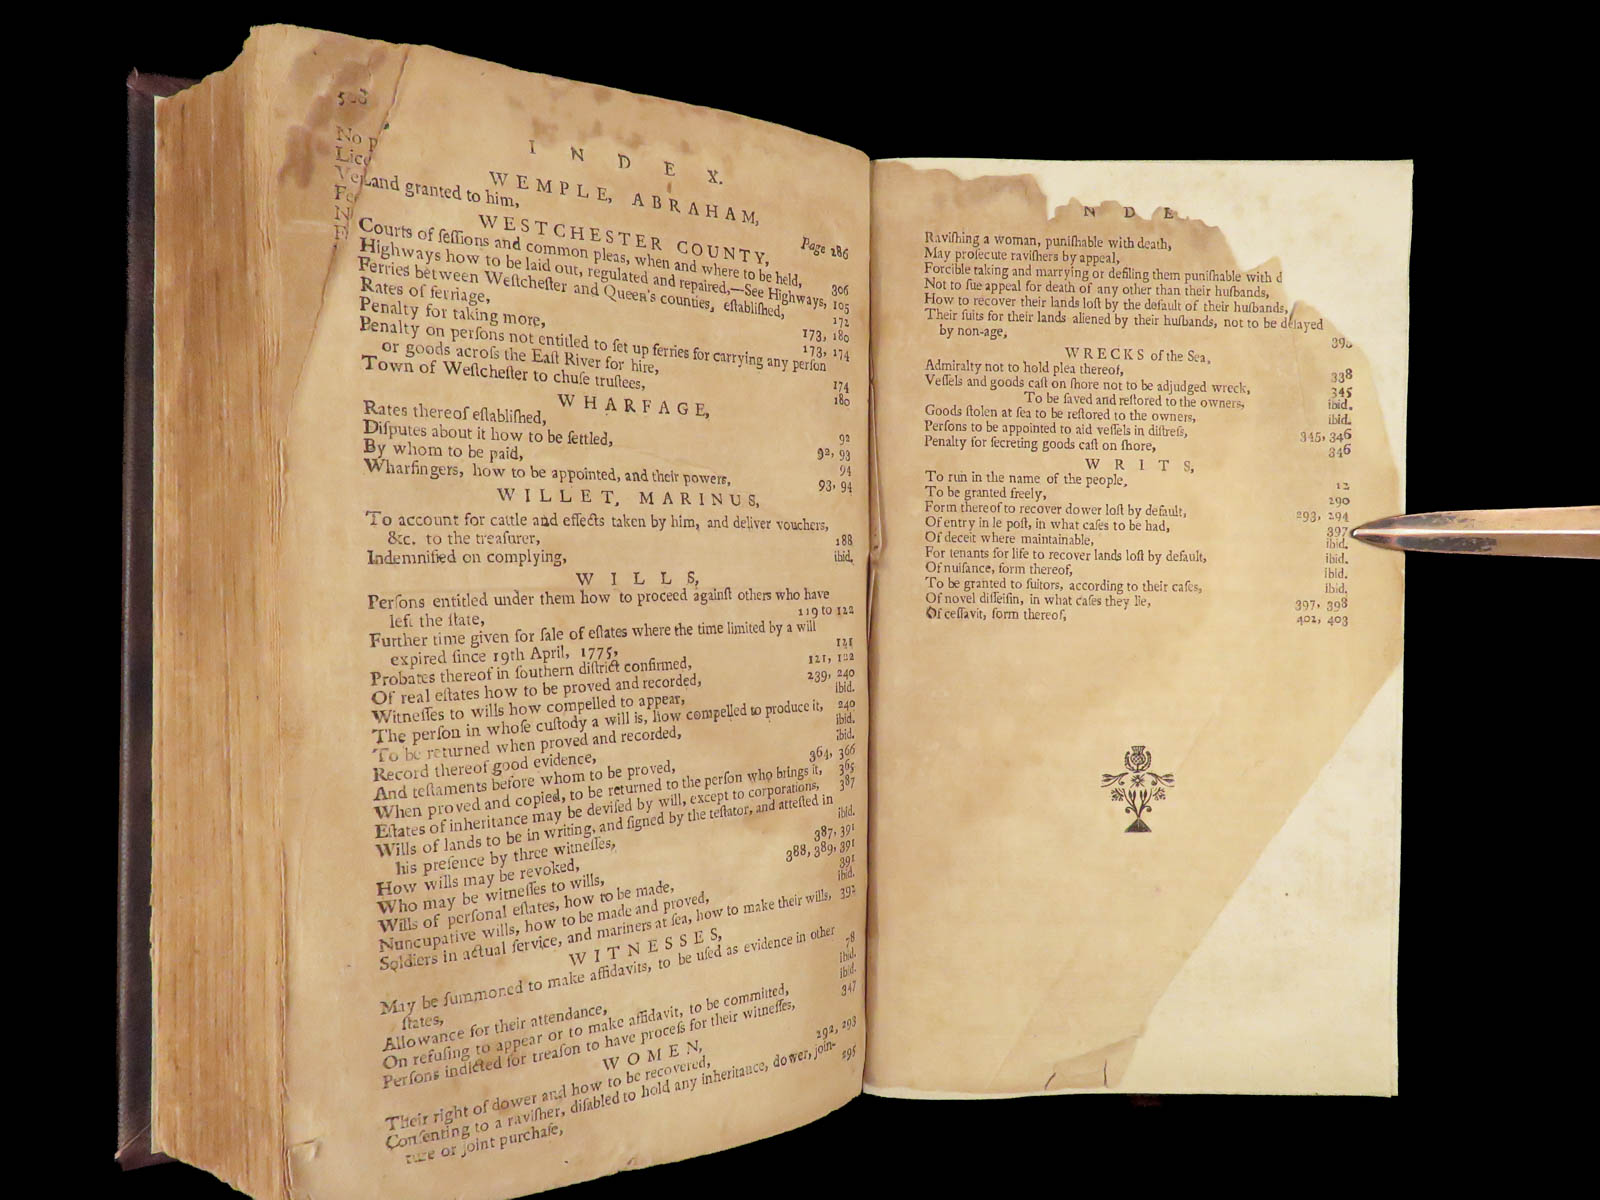 508
No p
Lice
Ve
Fe
N
F
I N D E X.
WEMPLE, ABRAHAM,
Land granted to him,
Page 186
WESTCHESTER COUNTY,
Courts of ſeſſions and common pleas, when and where to be held, 306
Highways how to be laid out, regulated and repaired,—See Highways, 105
Ferries between Weſtcheſter and Queen's counties, eſtabliſhed, 172
Rates of ferriage, 173, 180
Penalty for taking more, 173, 174
Penalty on perſons not entitled to ſet up ferries for carrying any perſon
or goods acroſs the Eaſt River for hire, 174
Town of Weſtcheſter to chuſe truſtees, 180
WHARFAGE,
Rates thereof eſtabliſhed, 92
Diſputes about it how to be ſettled, 92, 93
By whom to be paid, 94
Wharfingers, how to be appointed, and their powers, 93, 94
WILLET, MARINUS,
To account for cattle and effects taken by him, and deliver vouchers,
&c. to the treaſurer, 188
Indemnified on complying, ibid.
W I L L S,
Perſons entitled under them how to proceed againſt others who have
left the ſtate, 119 to 122
Further time given for ſale of eſtates where the time limited by a will
expired ſince 19th April, 1775, 121
Probates thereof in ſouthern diſtrict confirmed, 121, 122
Of real eſtates how to be proved and recorded, 239, 240
Witneſſes to wills how compelled to appear, ibid.
The perſon in whoſe cuſtody a will is, how compelled to produce it, 240
To be returned when proved and recorded, ibid.
Record thereof good evidence, ibid.
And teſtaments before whom to be proved, 364, 366
When proved and copied, to be returned to the perſon who brings it, 365
Eſtates of inheritance may be deviſed by will, except to corporations, 387
Wills of lands to be in writing, and ſigned by the teſtator, and atteſted in
his preſence by three witneſſes, ibid.
How wills may be revoked, 387, 391
Who may be witneſſes to wills, 388, 389, 391
Wills of perſonal eſtates, how to be made, 391
Nuncupative wills, how to be made and proved, ibid.
Soldiers in actual ſervice, and mariners at ſea, how to make their wills, 392
WITNESSES,
May be ſummoned to make affidavits, to be uſed as evidence in other
ſtates, 78
Allowance for their attendance, ibid.
On refuſing to appear or to make affidavit, to be committed, ibid.
Perſons indicted for treaſon to have proceſs for their witneſſes, 347
WOMEN,
Their right of dower and how to be recovered, 292, 293
Conſenting to a raviſher, diſabled to hold any inheritance, dower, join-
ture or joint purchaſe, 295
N D E
Raviſhing a woman, puniſhable with death,
May proſecute raviſhers by appeal,
Forcible taking and marrying or defiling them puniſhable with d
Not to ſue appeal for death of any other than their huſbands,
How to recover their lands loſt by the default of their huſbands,
Their ſuits for their lands aliened by their huſbands, not to be delayed
by non-age,
WRECKS of the Sea,
Admiralty not to hold plea thereof, 338
Veſſels and goods caſt on ſhore not to be adjudged wreck, 345
To be ſaved and reſtored to the owners, ibid.
Goods ſtolen at ſea to be reſtored to the owners, ibid.
Perſons to be appointed to aid veſſels in diſtreſs, 345, 346
Penalty for ſecreting goods caſt on ſhore, 346
W R I T S,
To run in the name of the people, 12
To be granted freely, 290
Form thereof to recover dower loſt by default, 293, 294
Of entry in le poſt, in what caſes to be had, 397
Of deceit where maintainable, ibid.
For tenants for life to recover lands loſt by default, ibid.
Of nuiſance, form thereof, ibid.
To be granted to ſuitors, according to their caſes, ibid.
Of novel diſſeiſin, in what caſes they lie, 397, 398
Of ceſſavit, form thereof, 402, 403